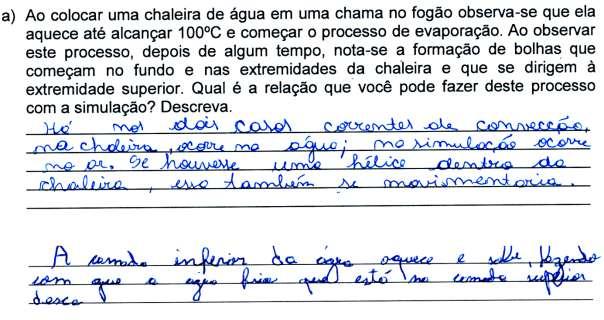 a) Ao colocar uma chaleira de água em uma chama no fogão observa-se que ela
aquece até alcançar 100ºC e começar o processo de evaporação. Ao observar
este processo, depois de algum tempo, nota-se a formação de bolhas que
começam no fundo e nas extremidades da chaleira e que se dirigem à
extremidade superior. Qual é a relação que você pode fazer deste processo
com a simulação? Descreva.
Há nos dois casos correntes de convecção,
na chaleira, ocorre na água; na simulação ocorre
no ar. Se houvesse uma hélice dentro da
chaleira, essa também se movimentaria.
A camada inferior da água aquece e sobe, fazendo
com que a água fria que está na camada superior
desça